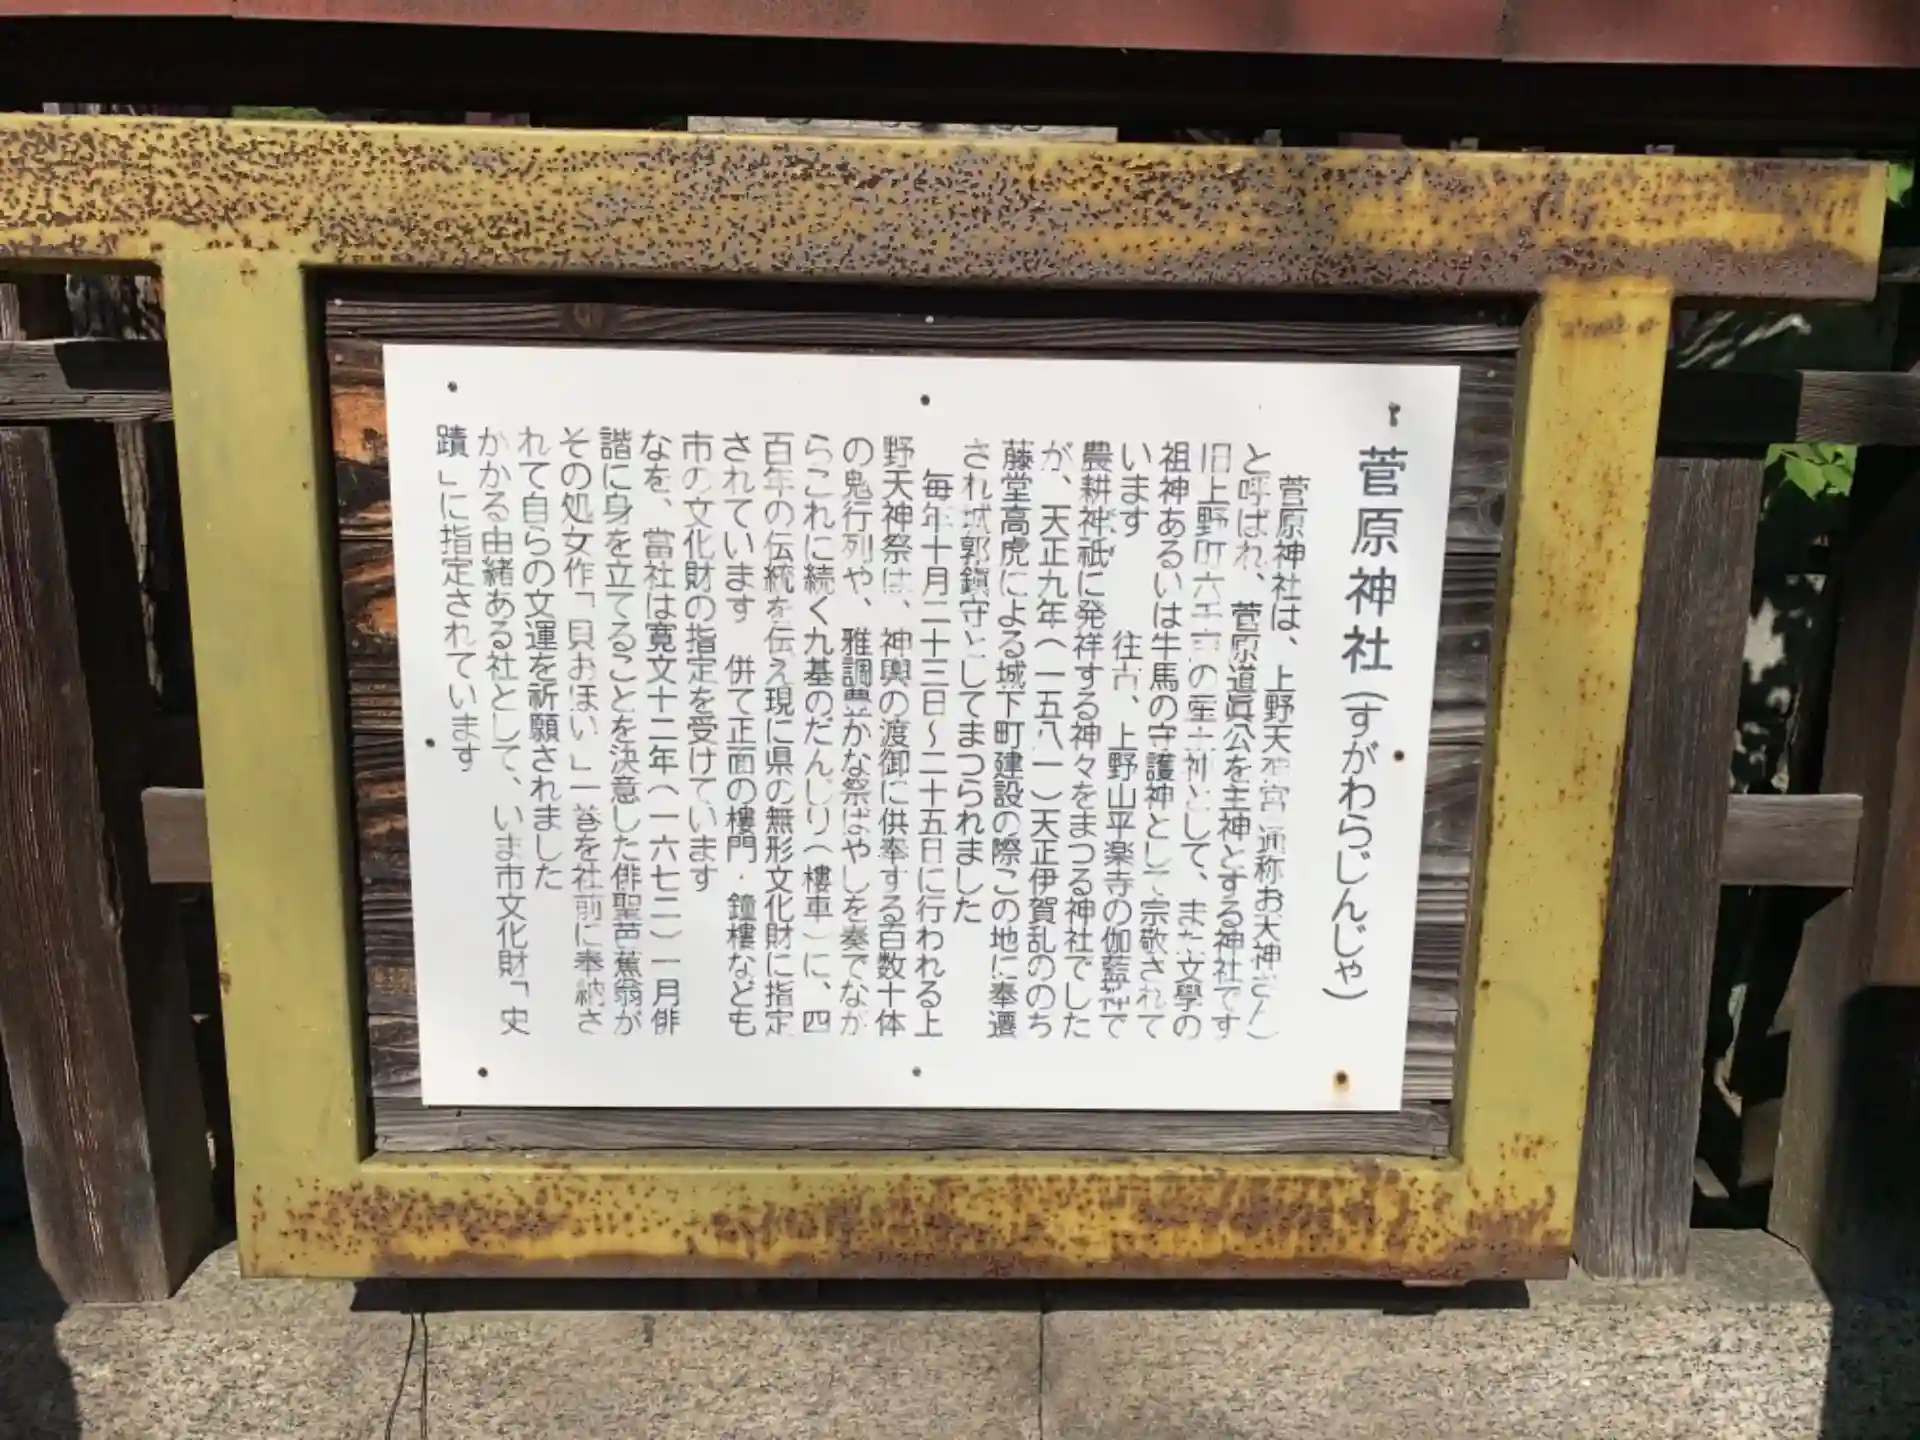 菅原神社（すがわらじんじゃ）
菅原神社は、上野天神宮 通称お天神さん）
と呼ばれ、菅原道眞公を主神とする神社です
旧上野町六千 の産土神として、また文學の
祖神あるいは牛馬の守護神として宗敬されて
います 往古、上野山平楽寺の伽藍神で
農耕神祇に発祥する神々をまつる神社でした
が、天正九年（一五八一）天正伊賀乱ののち
藤堂高虎による城下町建設の際この地に奉遷
され城郭鎮守としてまつられました
毎年十月二十三日～二十五日に行われる上
野天神祭は、神輿の渡御に供奉する百数十体
の鬼行列や、雅調豊かな祭ばやしを奏でなが
らこれに続く九基のだんじり（樓車）に、四
百年の伝統を伝え現に県の無形文化財に指定
されています 併て正面の樓門・鐘樓なども
市の文化財の指定を受けています
なを、當社は寛文十二年（一六七二）一月俳
諧に身を立てることを決意した俳聖芭蕉翁が
その処女作「貝おほい」一巻を社前に奉納さ
れて自らの文運を祈願されました
かかる由緒ある社として、いま市文化財「史
蹟」に指定されています